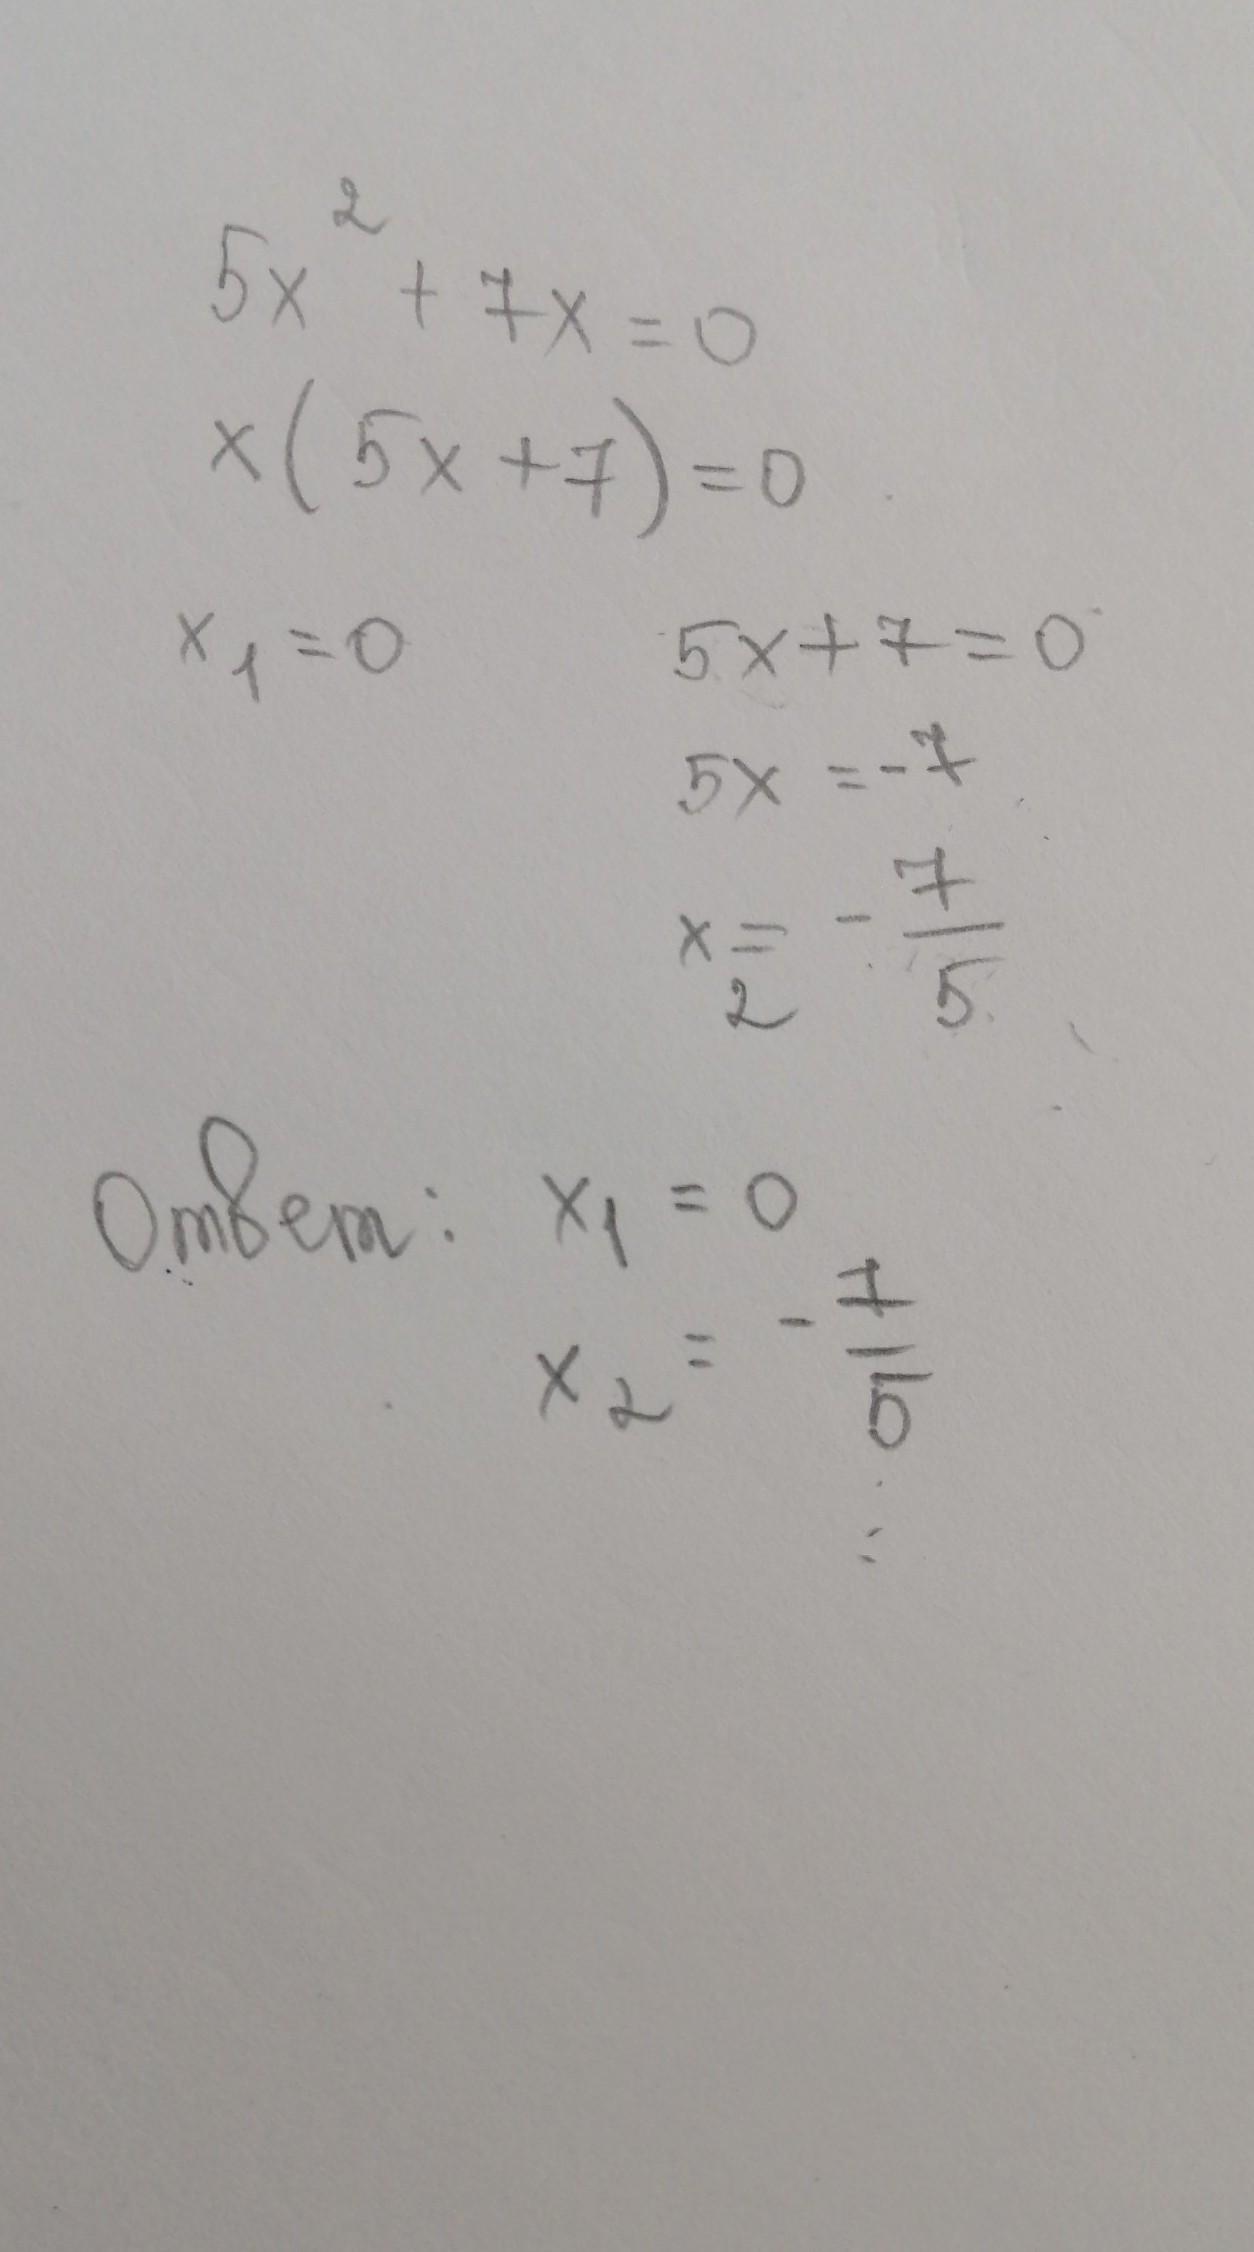 5x² + 7x = 0
x(5x + 7) = 0
x₁ = 0 5x + 7 = 0
5x = -7
x₂ = - 7/5
Ответ: x₁ = 0
x₂ = - 7/5